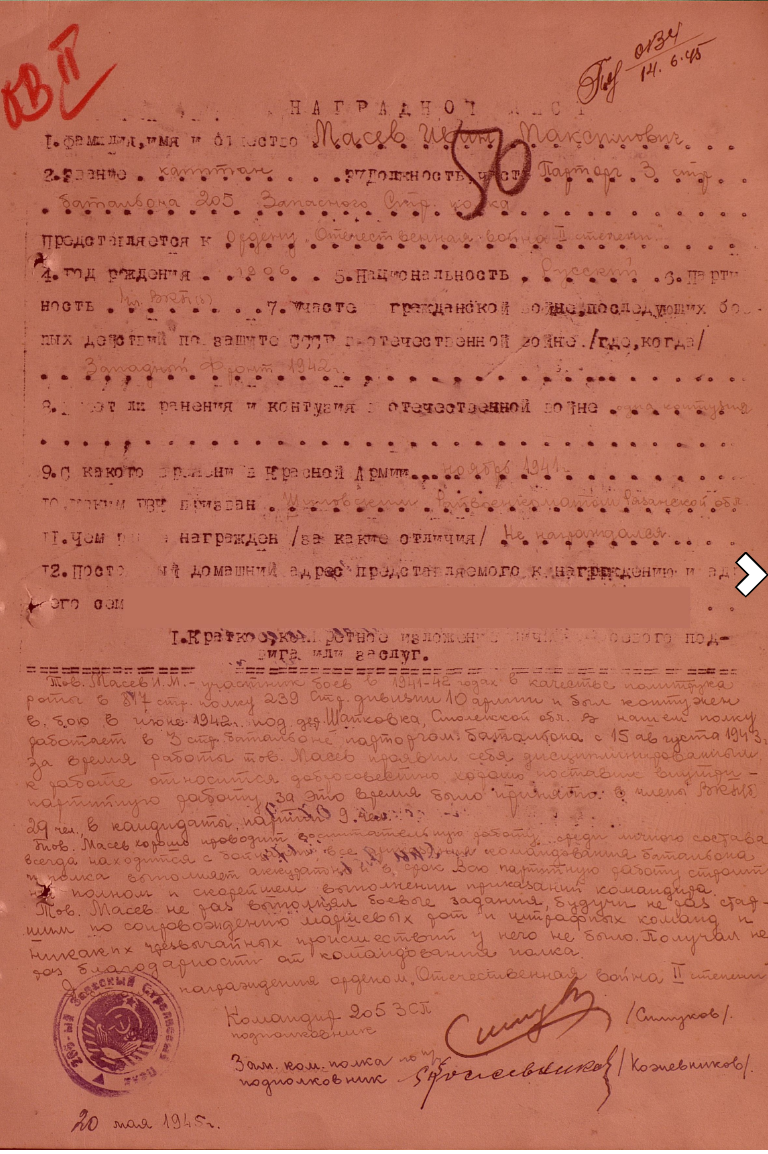 ОВ II
Пр ОВЧ
14.6.45
НАГРАДНОЙ ЛИСТ
1.Фамилия,имя и отчество Масев Иван Максимович
2.Звание капитан 3.Должность,часть Парторг 3 стр
батальона 205 Запасного Стр. полка
50
Представляется к Ордену "Отечественная война II степени"
4.Год рождения 1906 5.Национальность Русский 6.Парти
ность чл. ВКП/б/ 7.Участие гражданской войне,последующих бо
вых действий по защите СССР и отечественной войне /где,когда/
Западный Фронт 1942г.
8.Имеет ли ранения и контузия в отечественной войне одна контузия
9.С какого времени в Красной Армии ноябрь 1941г
10.Каким РВК призван Райвоенкоматом Рязанской обл
11.Чем ранее награжден /за какие отличия/ Не награждался
12.Постоянный домашний адрес представляемого к награждению и адр
его сем
I.Краткое,конкретное изложение личного боевого под-
вига или заслуг.
Тов. Масев И.М.- участник боев в 1941-42 годах в качестве политрука
роты в 817 стр. полку 239 Стр. дивизии 10 армии и был контужен
в бою в июне 1942г. под дер. Шатковка, Смоленской обл. В нашем полку
работает в 3 стр. батальоне парторгом батальона с 15 августа 1943г.
За время работы тов. Масев проявил себя дисциплинированным
к работе относится добросовестно хорошо поставил внутри-
партийную работу, за это время было принято в члены ВКП/б
29 чел., в кандидаты партии 9 чел.
Тов. Масев хорошо проводит воспитательную работу среди личного состава
всегда находится с батальоном все командования батальона
и полка выполняет аккуратно и в срок. Всю партийную работу строит
на полном и скорейшем выполнении приказаний командира.
Тов. Масев не раз выполнял боевые задания, будучи не раз стар-
шим по сопровождению маршевых рот и штрафных команд и
никаких чрезвычайных происшествий у него не было. Получал не
раз благодарности от командования полка.
награждения орденом "Отечественная война II степени"
Командир 205 ЗСП
подполковник /Симуков/.
Зам. ком. полка по п/ч
подполковник /Кожевников/.
205-ый Запасный Стрелковый Полк
20 мая 1945г.